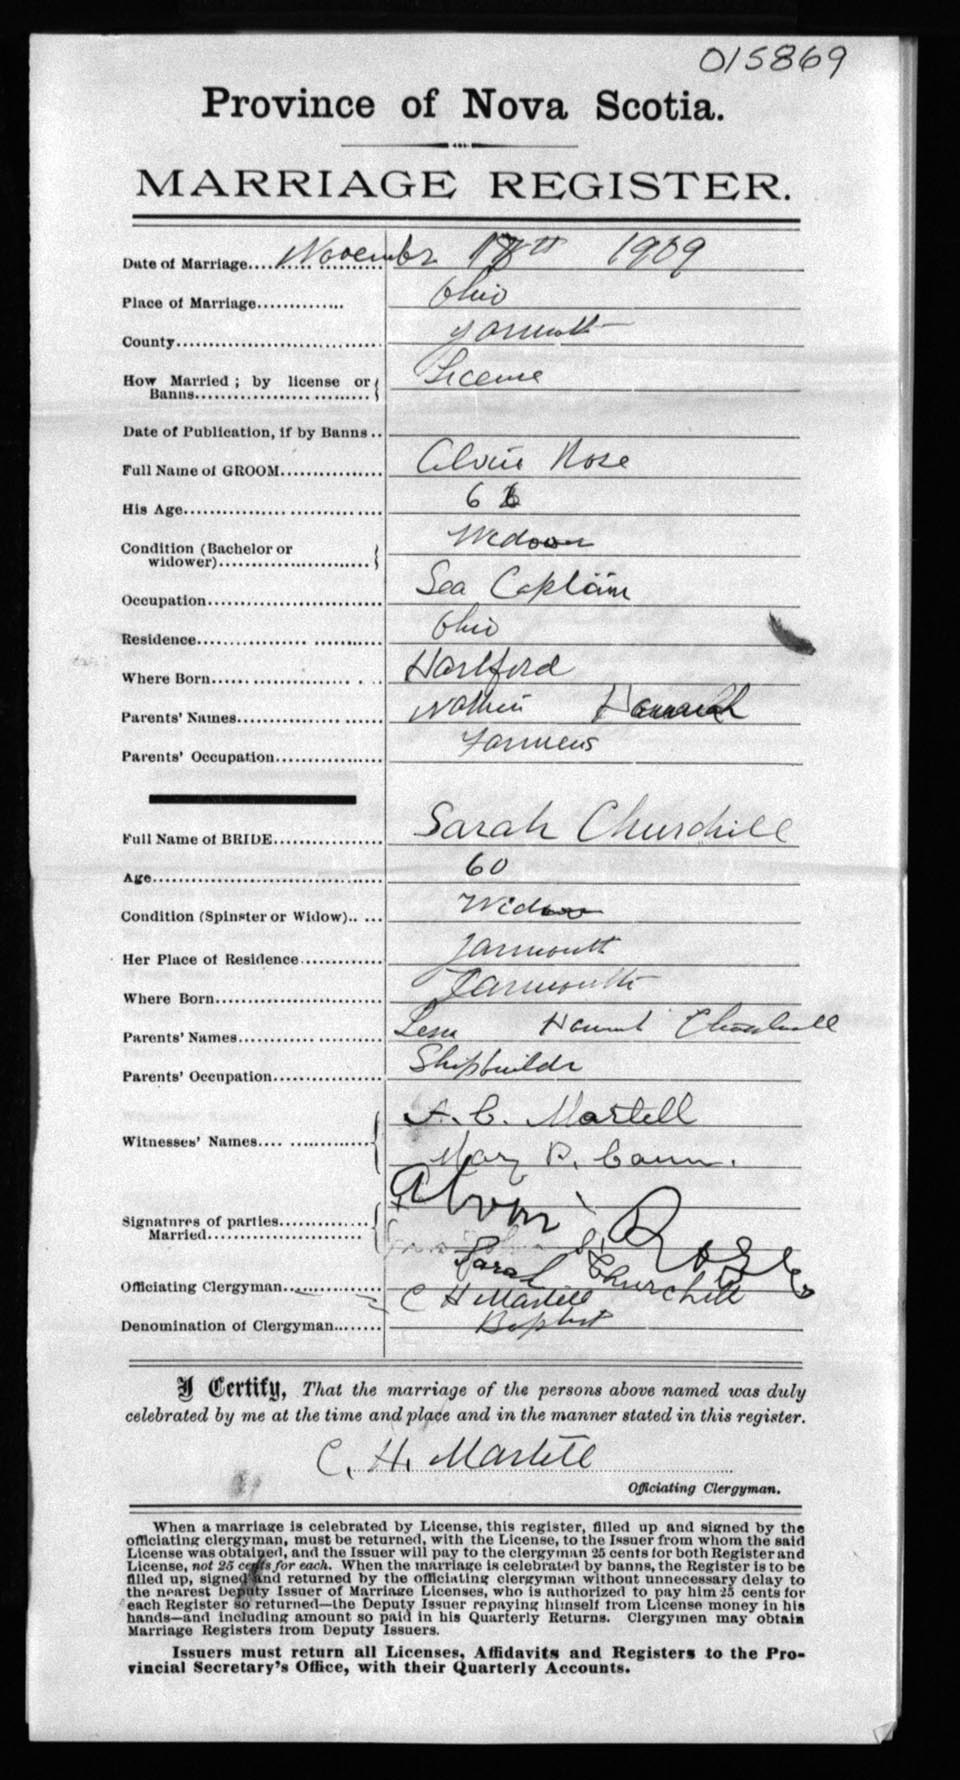 015869
Province of Nova Scotia.
MARRIAGE REGISTER.
Date of Marriage.... November 18th 1909
Place of Marriage............. Ohio
County.............................. Yarmouth
How Married ; by license or License
Banns.................. .........
Date of Publication, if by Banns ..
Full Name of GROOM............... Alvin Rose
His Age............................. 66
Condition (Bachelor or Widower
widower)..........................
Occupation............................ Sea Captain
Residence............................. Ohio
Where Born........................... Hartford
Parents' Names....................... Nathan Hannah
Parents' Occupation................ Farmers
Full Name of BRIDE................ Sarah Churchill
Age................................... 60
Condition (Spinster or Widow).. .... Widow
Her Place of Residence............ Yarmouth
Where Born........................ Yarmouth
Parents' Names..................... Hannah Churchill
Parents' Occupation................ Shipbuilder
A. C. Martell
Witnesses' Names.... ............
Mary B. Cann.
Alvin Rose
Signatures of parties.............
Married.......................
Sarah Churchill
Officiating Clergyman............ C H Martell
Denomination of Clergyman........ Baptist
I Certify, That the marriage of the persons above named was duly
celebrated by me at the time and place and in the manner stated in this register.
C. H. Martell
Officiating Clergyman.
When a marriage is celebrated by License, this register, filled up and signed by the
officiating clergyman, must be returned, with the License, to the Issuer from whom the said
License was obtained, and the Issuer will pay to the clergyman 25 cents for both Register and
License, not 25 cents for each. When the marriage is celebrated by banns, the Register is to be
filled up, signed and returned by the officiating clergyman without unnecessary delay to
the nearest Deputy Issuer of Marriage Licenses, who is authorized to pay him 25 cents for
each Register so returned—the Deputy Issuer repaying himself from License money in his
hands—and including amount so paid in his Quarterly Returns. Clergymen may obtain
Marriage Registers from Deputy Issuers.
Issuers must return all Licenses, Affidavits and Registers to the Pro-
vincial Secretary's Office, with their Quarterly Accounts.